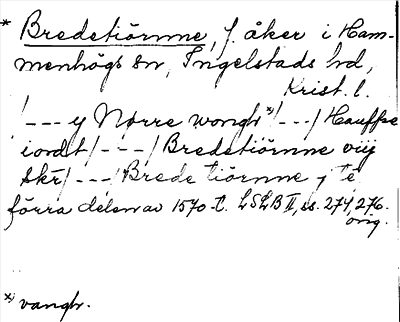 * Bredetiörnne, f. åker i Ham-
menhögs sn, Ingelstads hd,
Krist. l.
/---y Nørre wongh*)/---/ Hauffre
iordt/---/ Bredetiörnne viij
skr/---/ Brede tiörnne j te
förra delen av 1570-t. LSLB II, ss. 274, 276.
orig.
*) vangh.